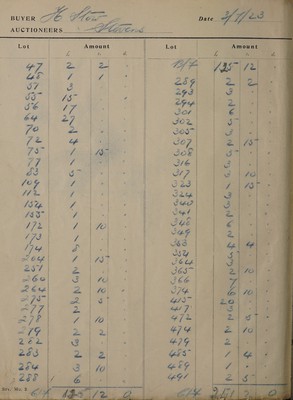 BUYER H
Date 3/7/23
AUCTIONEERS Stevens
Lot Amount
47 2 2
48 1 1
51 3
55 15
56 17
64 27
70 2
72 4
75 1 15
77 1
83 5
109 1
112 1
154 1
155 1
172 1 10
173 1
174 8
204 1 15
251 2
260 3 10
264 2 10
275 2 5
277 2
278 1 10
279 2 2
282 3
283 2 2
284 3 10
288 6
Lot Amount
B/f 125 12
289 2 2
293 3
294 2
301 6
302 5
305 3
307 2 15
308 5
316 3
317 5 10
323 1 15
324 3
340 3
341 2
348 6
349 2
353 4 4
354 3
364 3
365 2 10
366 7
374 6 10
415 20
417 3
472 2 5
474 2 10
479 2
485 1 4
489 1
491 2 5